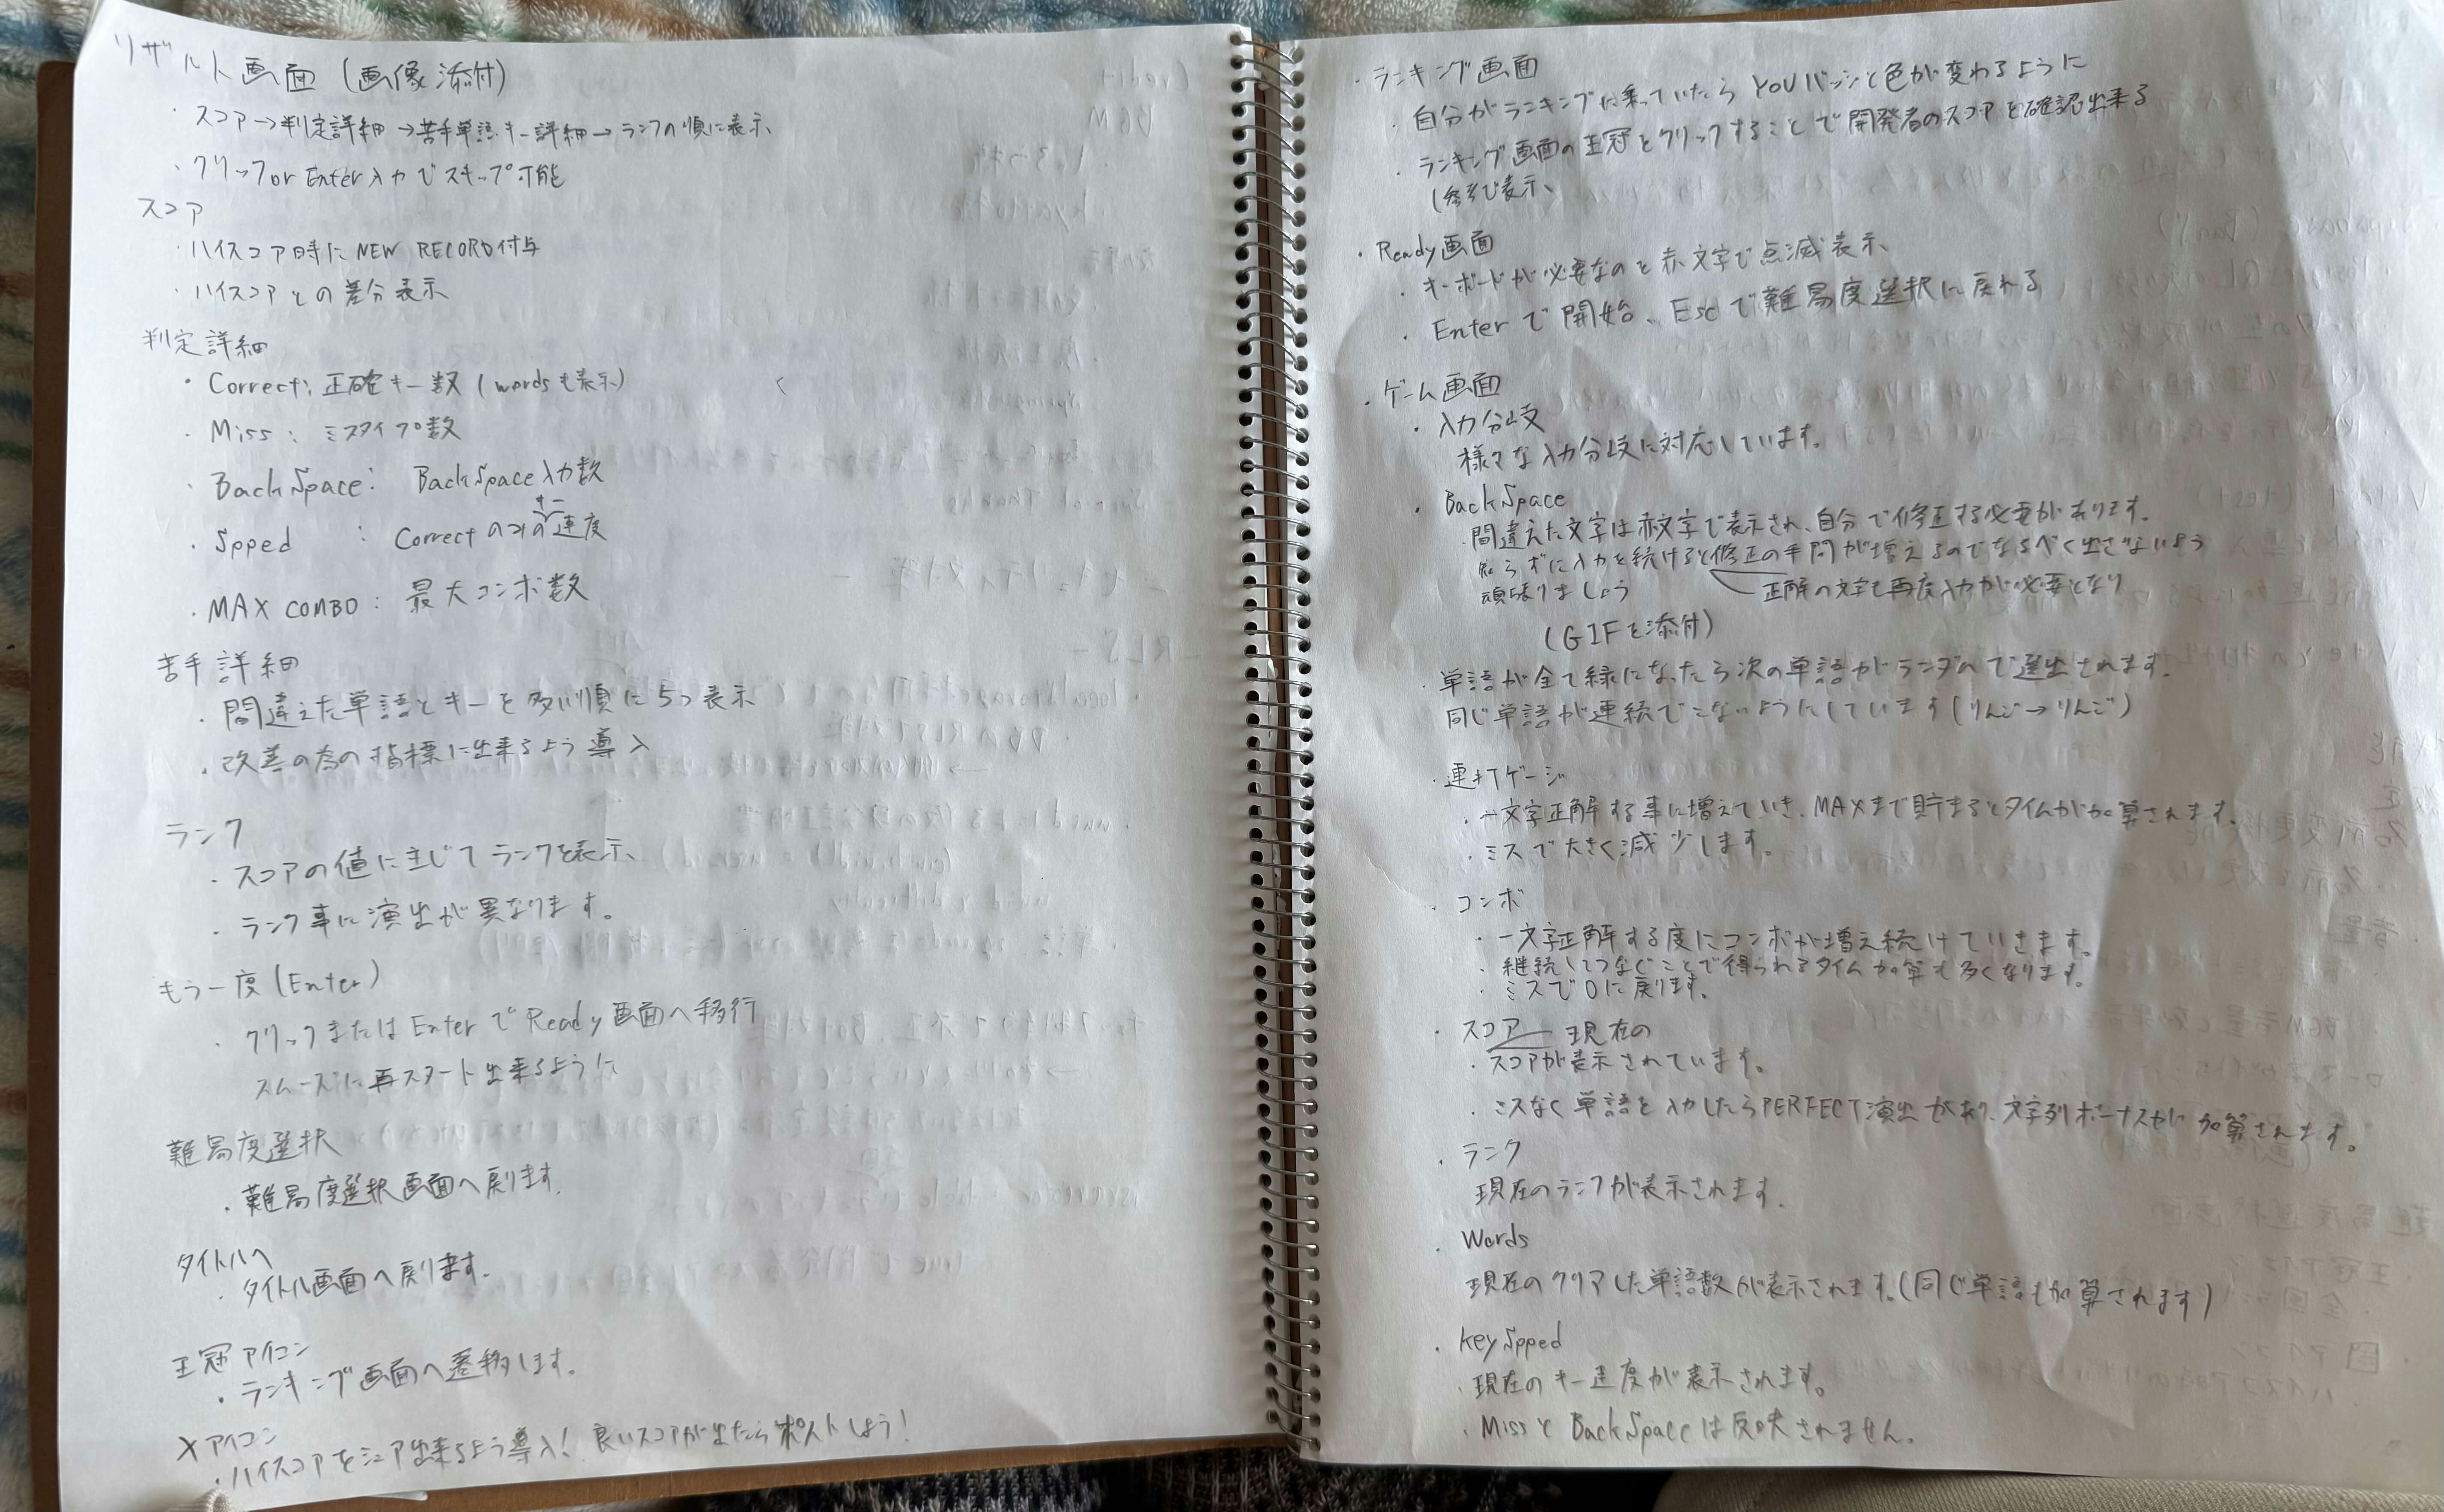 リザルト画面 (画像添付)
・スコア→判定詳細→苦手単語・キー詳細→ランクの順に表示
・クリック or Enter入力でスキップ可能
スコア
・ハイスコア時に NEW RECORD付与
・ハイスコアとの差分表示
判定詳細
・Correct: 正確キー数 (wordsも表示)
・Miss: ミスタイプ数
・BackSpace: BackSpace入力数
・Spped : Correctのみのキー速度
・MAX COMBO: 最大コンボ数
苦手詳細
・間違えた単語とキーを多い順に5つ表示
・改善の為の指標に出来るよう導入
ランク
・スコアの値に応じてランクを表示
・ランク事に演出が異なります。
もう一度 (Enter)
・クリックまたは Enterで Ready画面へ移行
スムーズに再スタート出来るように
難易度選択
・難易度選択画面へ戻ります。
タイトルへ
・タイトル画面へ戻ります。
王冠アイコン
・ランキング画面へ遷移します。
Xアイコン
・ハイスコアをシェア出来るよう導入! 良いスコアが出たらポストしよう!
・ランキング画面
・自分がランキングに乗っていたら YOUバッジと色が変わるように
・ランキング画面の王冠をクリックすることで開発者のスコアを確認出来る
(参考で表示、
・Ready画面
・キーボードが必要なのを赤文字で点滅表示
・Enterで開始、Escで難易度選択に戻れる
・ゲーム画面
・入力分岐
様々な入力分岐に対応しています。
・BackSpace
間違えた文字は赤文字で表示され、自分で修正する必要があります。
知らずに入力を続けると修正の手間が増えるのでなるべく出さないよう
頑張りましょう
正解の文字も再度入力が必要となり
(GIFを添付)
・単語が全て緑になったら次の単語がランダムで選出されます。
同じ単語が連続でこないようにしています(りんご→りんご)
・連打ゲージ
・一文字正解する事に増えていき、MAXまで貯まるとタイムが加算されます。
・ミスで大きく減少します。
・コンボ
・一文字正解する度にコンボが増え続けていきます。
・継続してつなぐことで得られるタイム加算も多くなります。
・ミスで0に戻ります。
・スコア 現在の
・スコアが表示されています。
・ミスなく単語を入力したらPERFECT演出があり、文字列ボーナスが加算されます。
・ランク
現在のランクが表示されます。
・Words
現在のクリアした単語数が表示されます。(同じ単語も加算されます)
・KeySpped
・現在のキー速度が表示されます。
・MissとBackSpaceは反映されません。